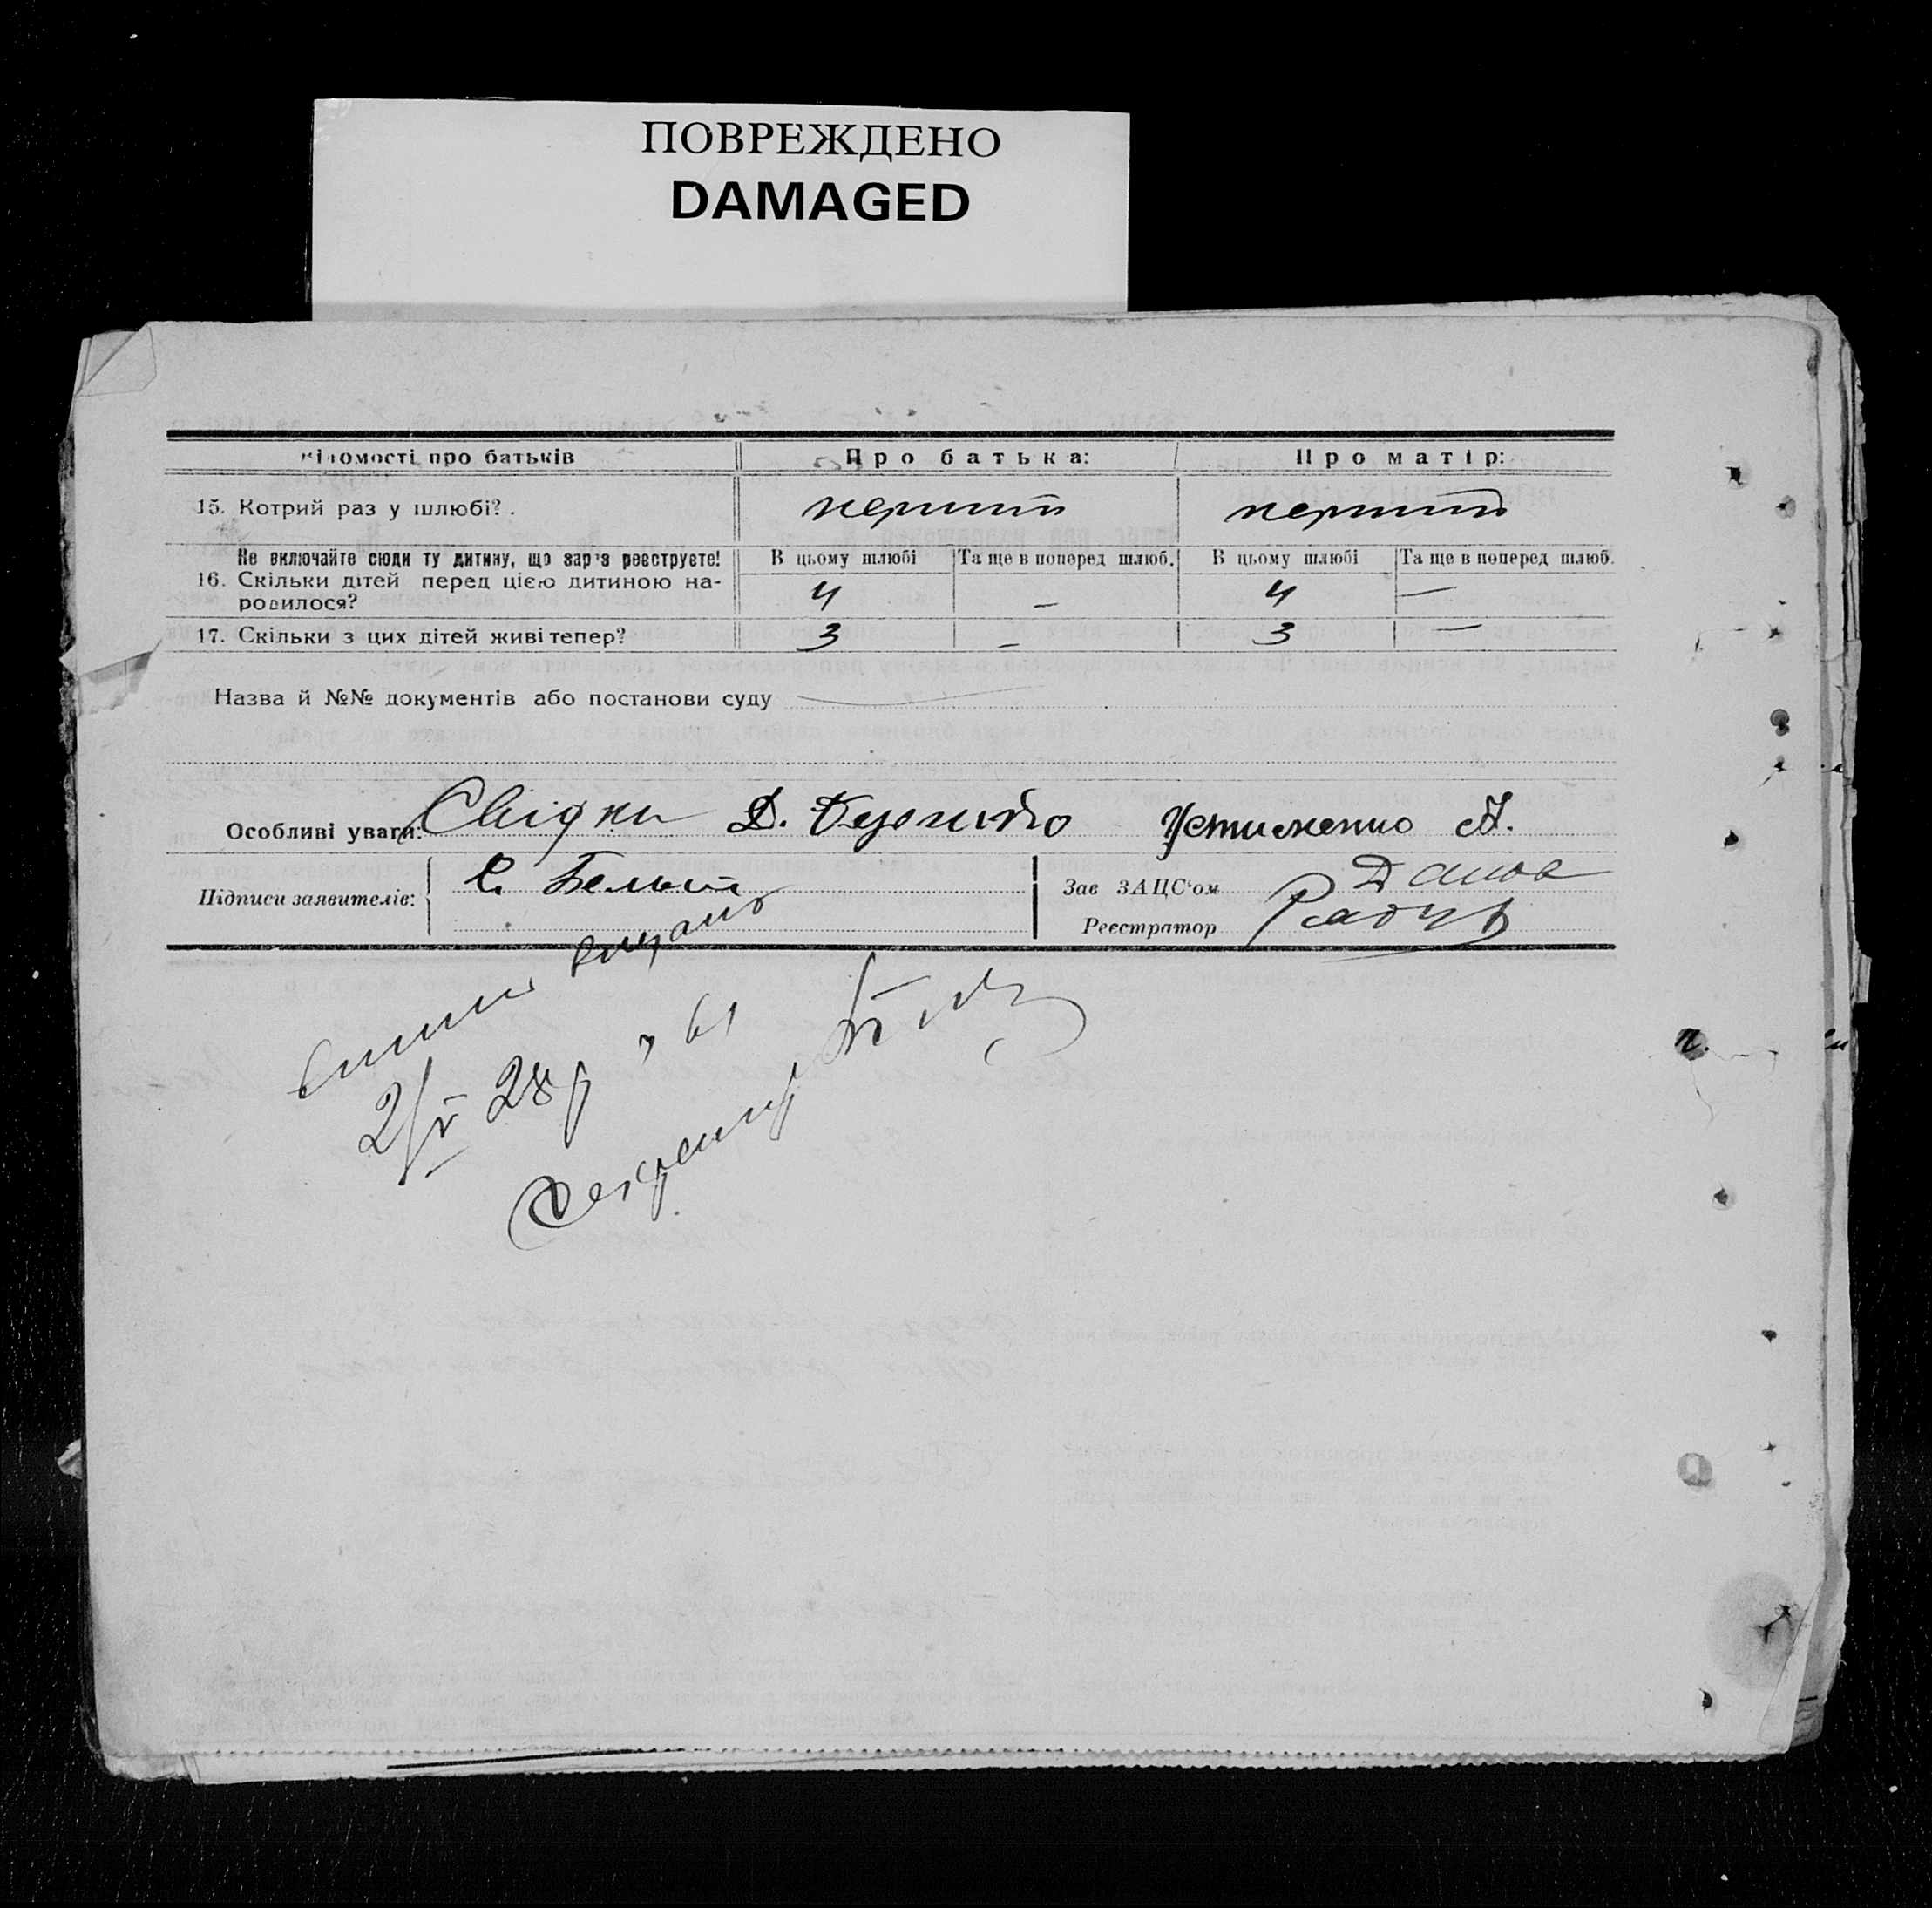 ПОВРЕЖДЕНО
DAMAGED
відомості про батьків Про батька: Про матір:
15. Котрий раз у шлюбі? . перший перший
Не включайте сюди ту дитину, що зар'з реєструєте! В цьому шлюбі Та ще в поперед шлюб. В цьому шлюбі Та ще в поперед шлюб.
16. Скільки дітей перед цією дитиною на-
родилося? 4 – 4 —
17. Скільки з цих дітей живі тепер? 3 – 3 —
Назва й №№ документів або постанови суду
Особливі уваги: Свідки Д. Устименко А.
Підписи заявителів: С. Зав ЗАЦС'ом
Реєстратор
видано
2/V 28 р 61
Секретар